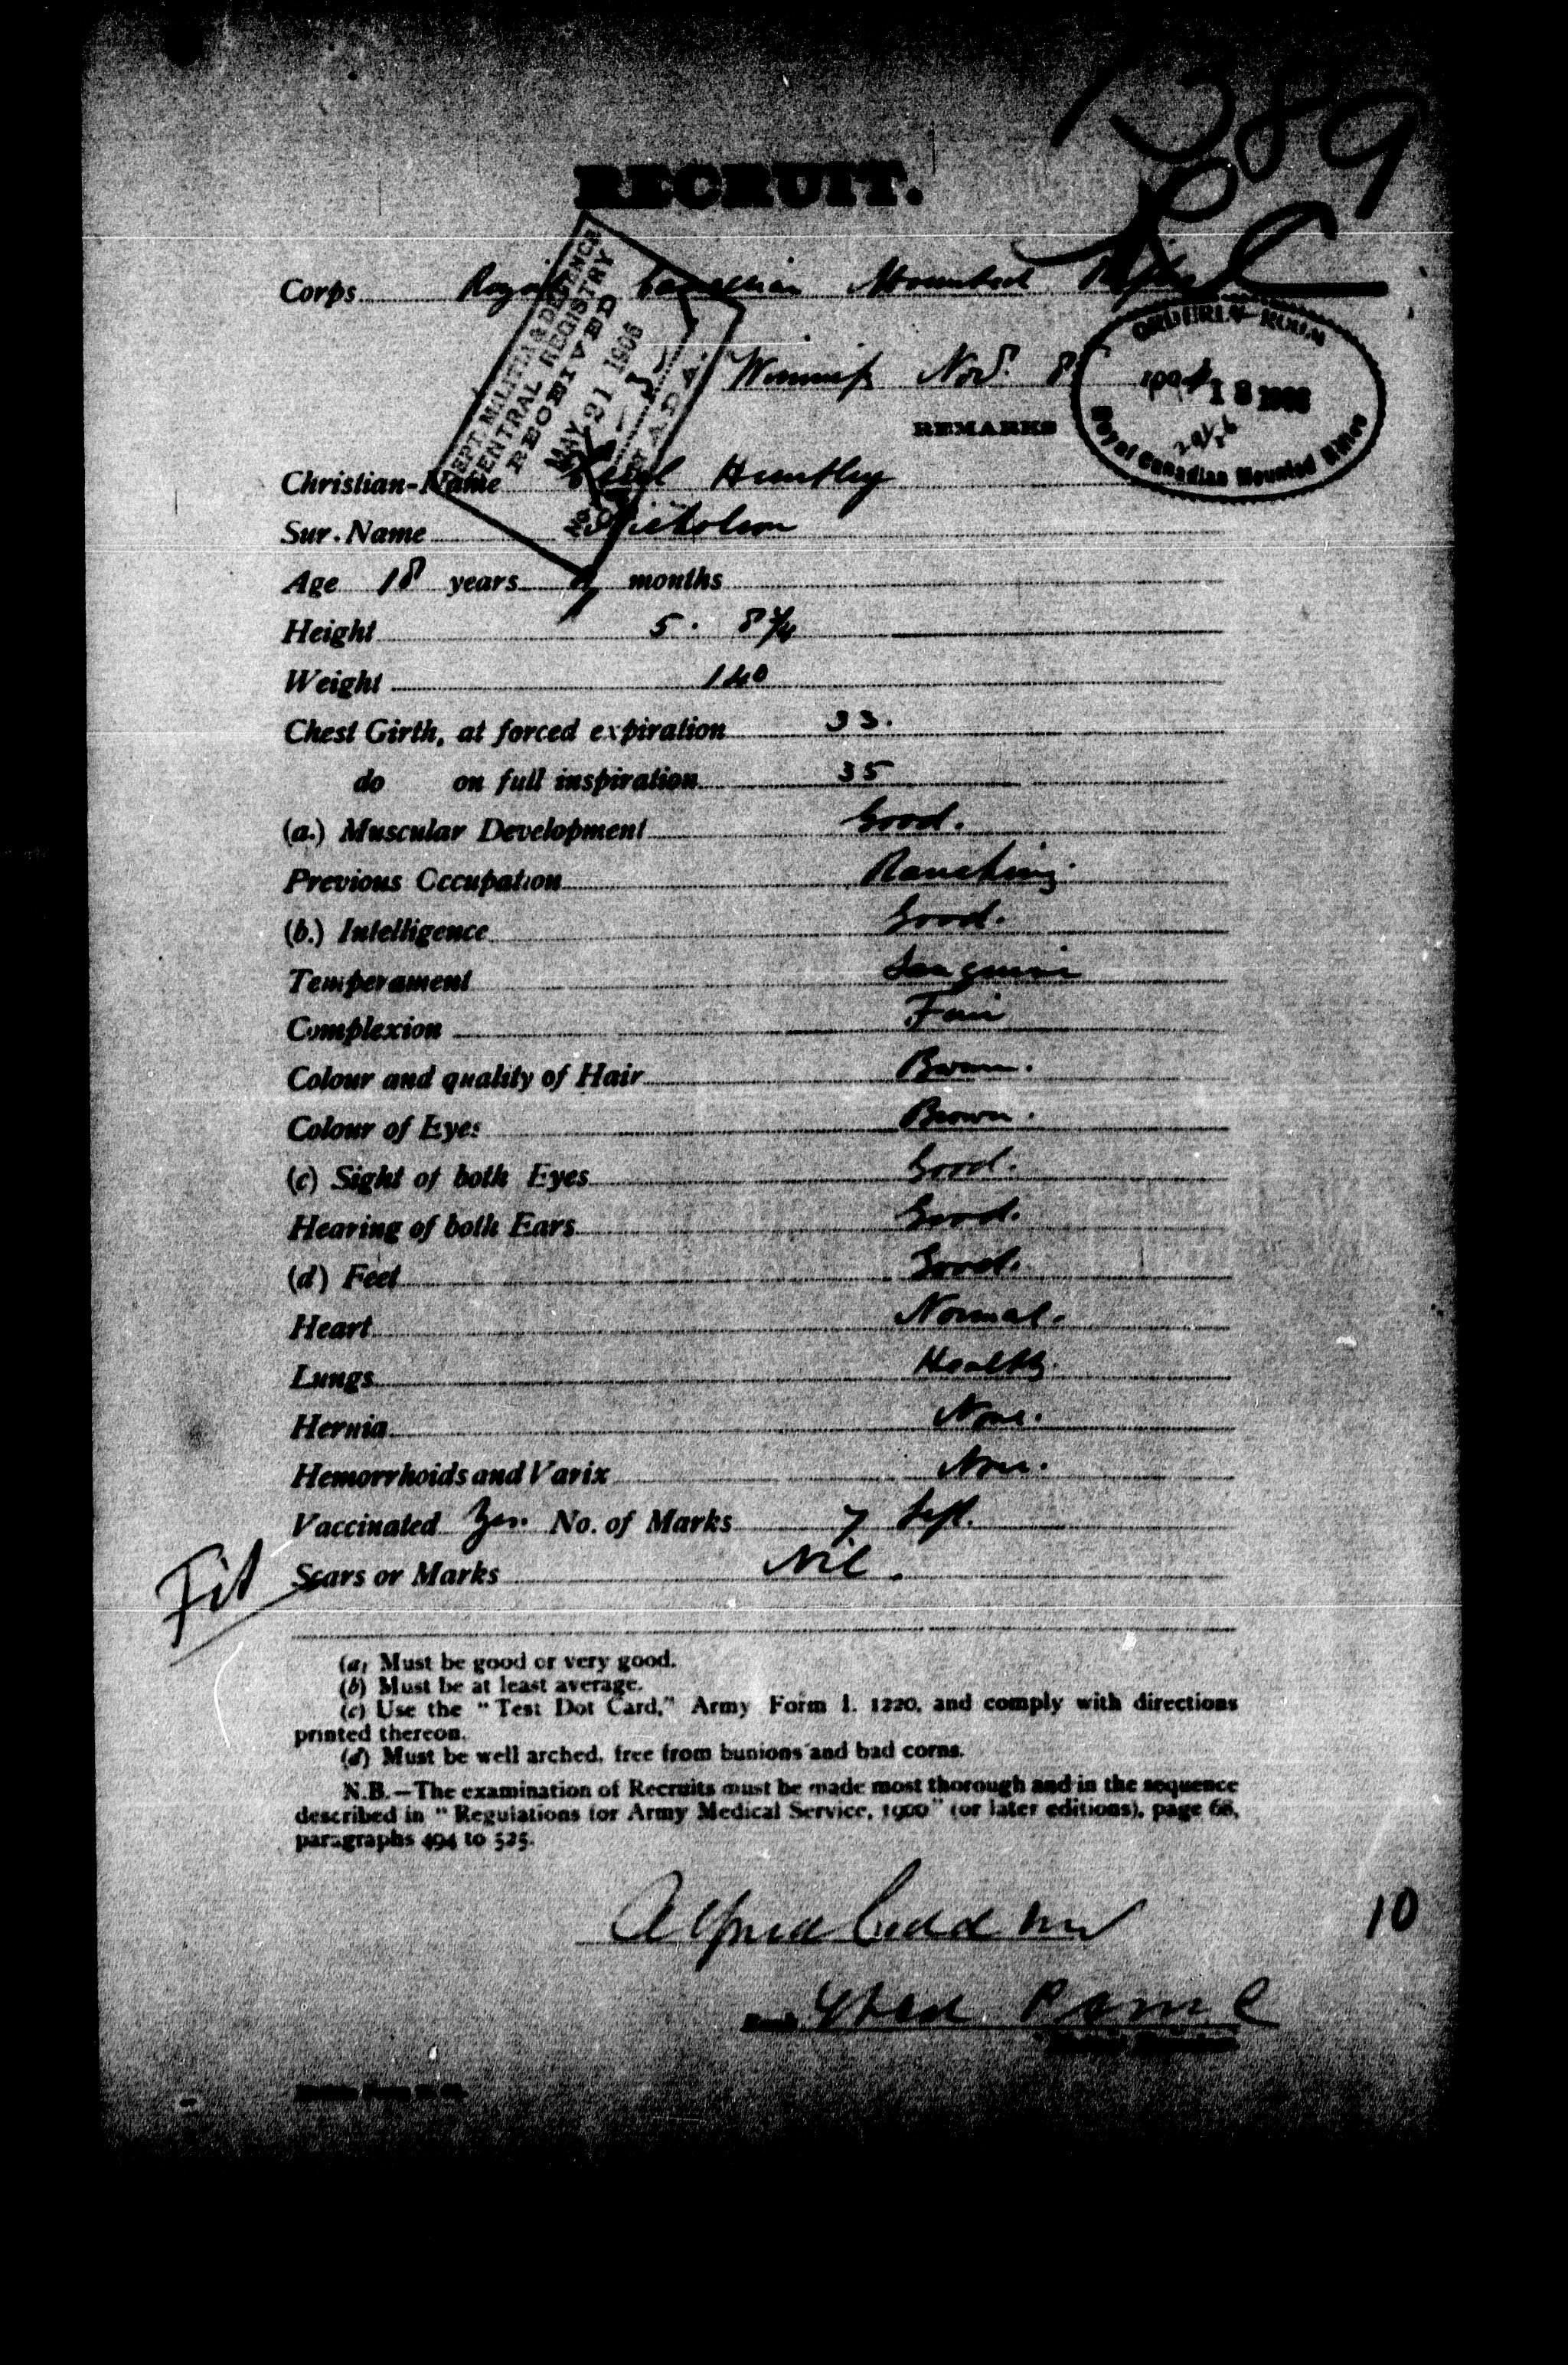 1389
RECRUIT.
Corps Royal Canadian Mounted Rifles
DEPT. MILITIA & DEFENCE
CENTRAL REGISTRY
RECEIVED
MAY 21 1906
ORDERLY ROOM
18 1906
Royal Canadian Mounted Rifles
Nov. 8
REMARKS
Christian-Name Huntley
Sur-Name Nicholson
Age 18 years months
Height 5. 8 3/4
Weight 140
Chest Girth, at forced expiration 33.
do on full inspiration 35
(a.) Muscular Development Good.
Previous Occupation Ranching
(b.) Intelligence Good.
Temperament Sanguine
Complexion Fair
Colour and quality of Hair Brown.
Colour of Eyes Brown.
(c) Sight of both Eyes Good.
Hearing of both Ears Good.
(d) Feet Good.
Heart Normal.
Lungs Healthy.
Hernia None.
Hemorrhoids and Varix None.
Vaccinated Yes. No. of Marks 7 left.
Fit
Scars or Marks Nil.
(a) Must be good or very good.
(b) Must be at least average.
(c) Use the "Test Dot Card," Army Form I. 1220, and comply with directions
printed thereon.
(d) Must be well arched, free from bunions and bad corns.
N.B.—The examination of Recruits must be made most thorough and in the sequence
described in "Regulations for Army Medical Service, 1900" (or later editions), page 68,
paragraphs 494 to 525.
10
Rank